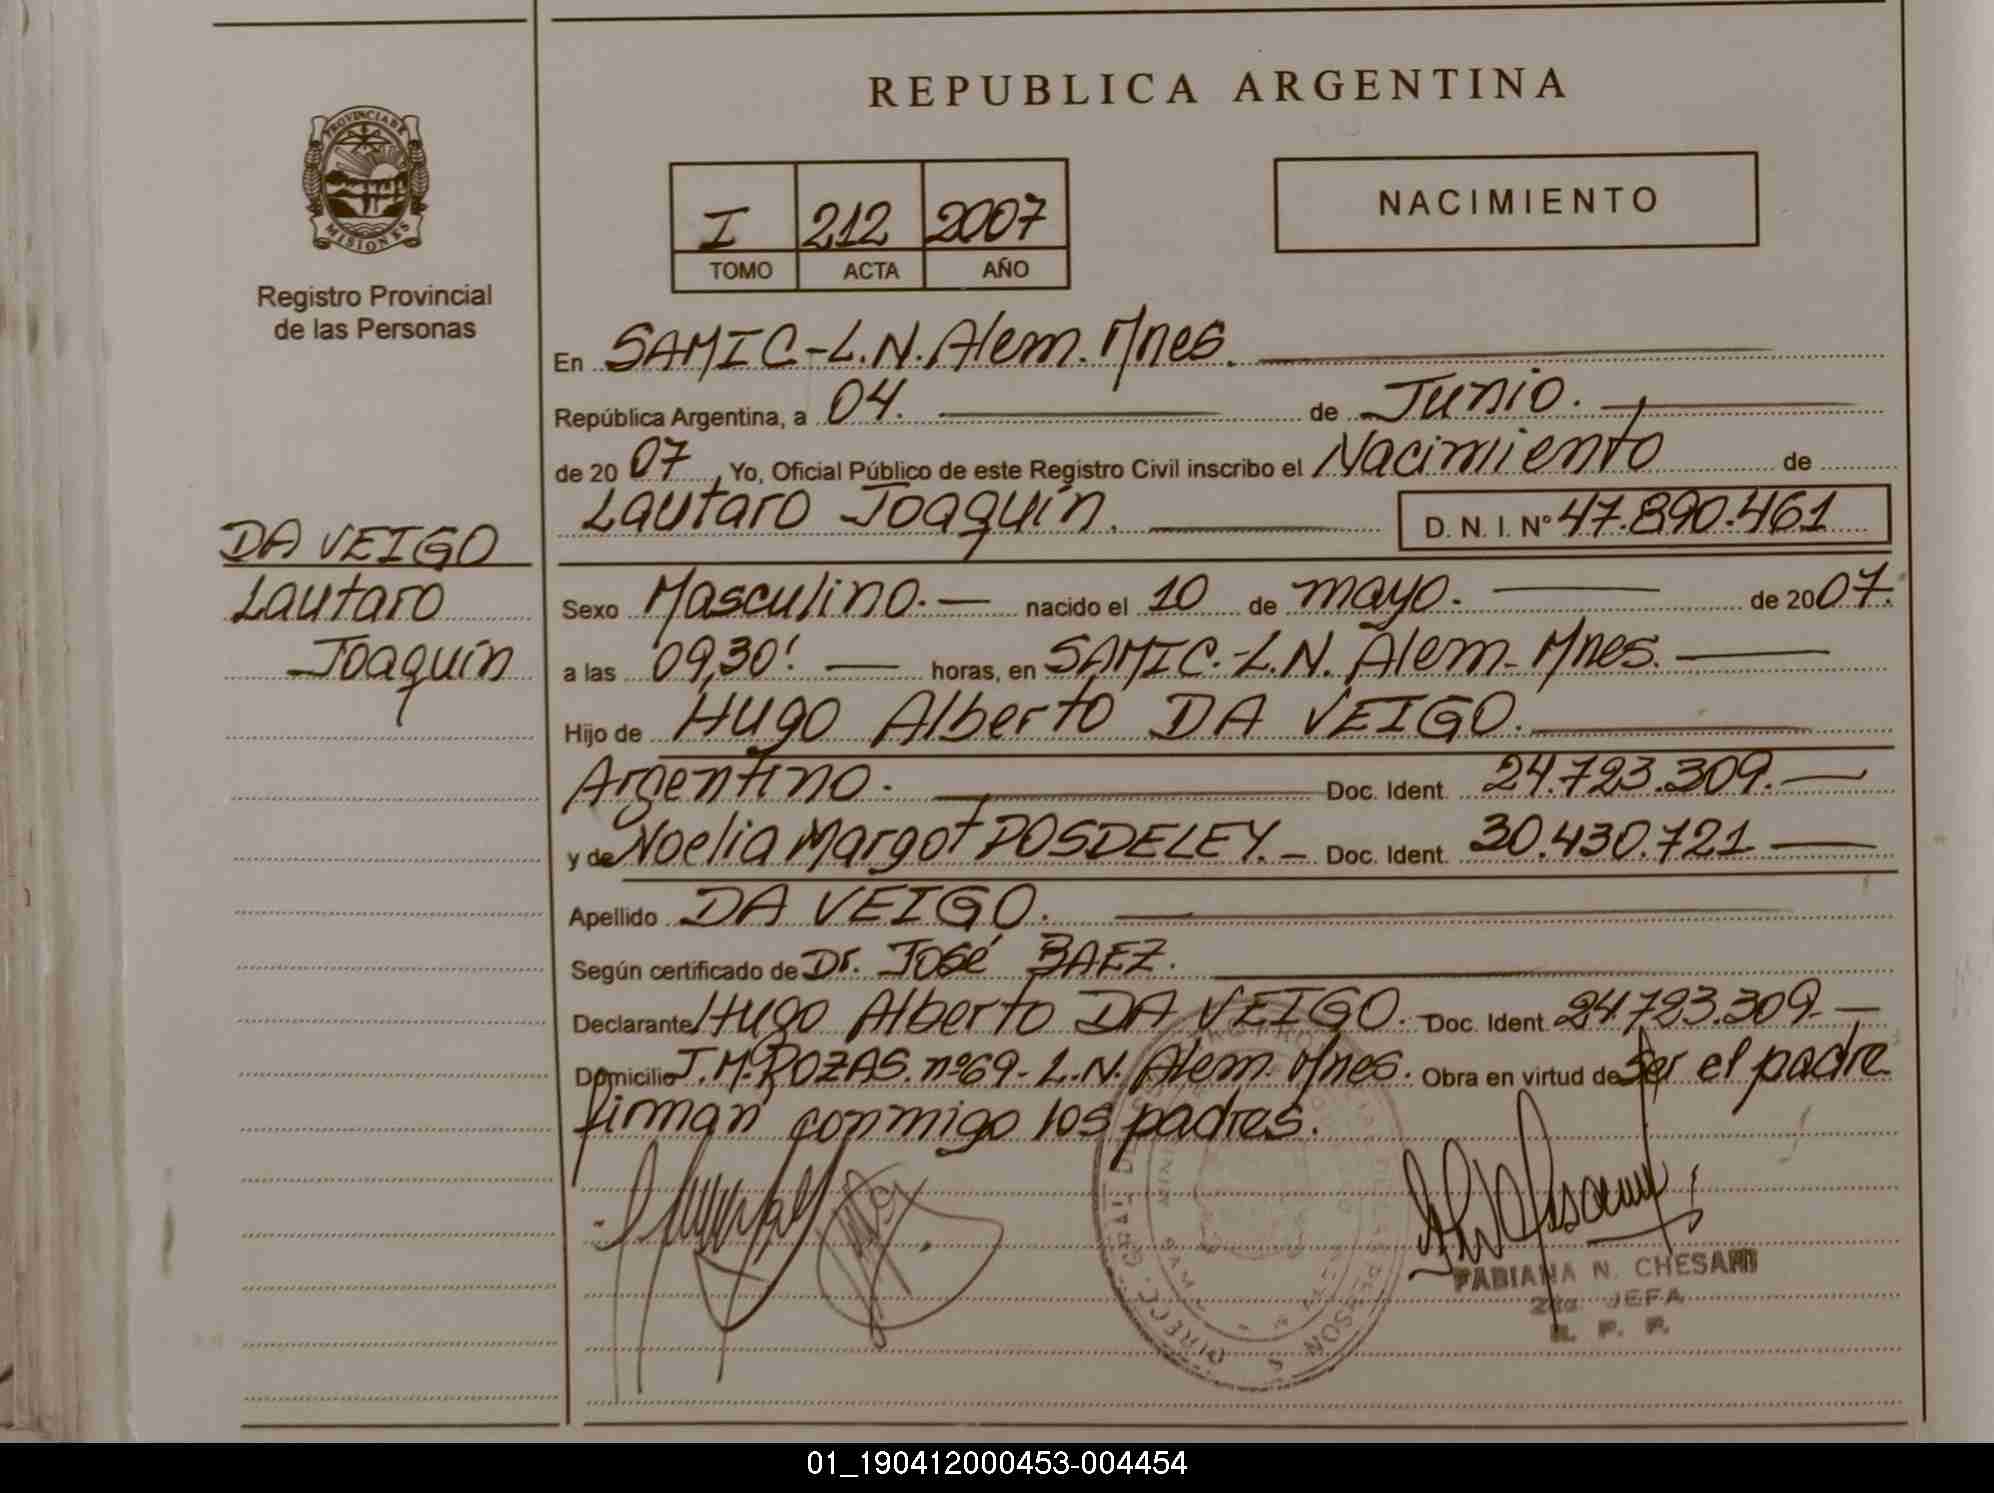 REPUBLICA ARGENTINA
PROVINCIA DE MISIONES
Registro Provincial
de las Personas
I 212 2007
TOMO ACTA AÑO
NACIMIENTO
En SAMIC-L.N. Alem. Mnes.
República Argentina, a 04. de Junio.
de 20 07, Yo, Oficial Público de este Registro Civil inscribo el Nacimiento de
Lautaro Joaquín. D. N. I. Nº 47.890.461
DA VEIGO
Lautaro
Joaquín
Sexo Masculino.- nacido el 10 de mayo. de 2007.
a las 09,30'. horas, en SAMIC.-L.N. Alem- Mnes.
Hijo de Hugo Alberto DA VEIGO.
Argentino. Doc. Ident. 24.723.309.
y de Noelia Margot POSDELEY.- Doc. Ident. 30.430.721
Apellido DA VEIGO.
Según certificado de Dr. José BAEZ.
Declarante Hugo Alberto DA VEIGO.- Doc. Ident. 24.723.309.-
Domicilio J.M. ROZAS. nº69- L.N. Alem. Mnes. Obra en virtud de Ser el padre
firman conmigo los padres.
FABIANA N. CHESANI
2da JEFA
R. P. P.
01_190412000453-004454